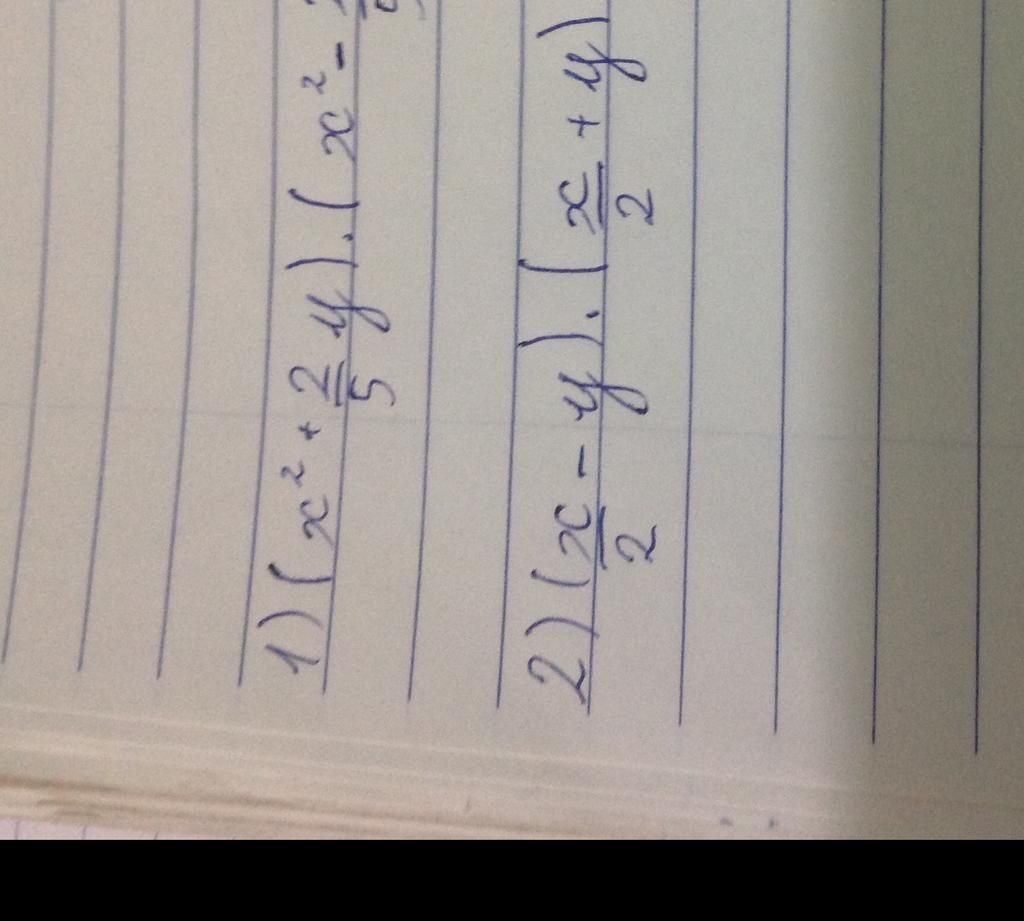 1) (x² + 2/5 y) . (x² -
2) (x/2 - y) . (x/2 + y)